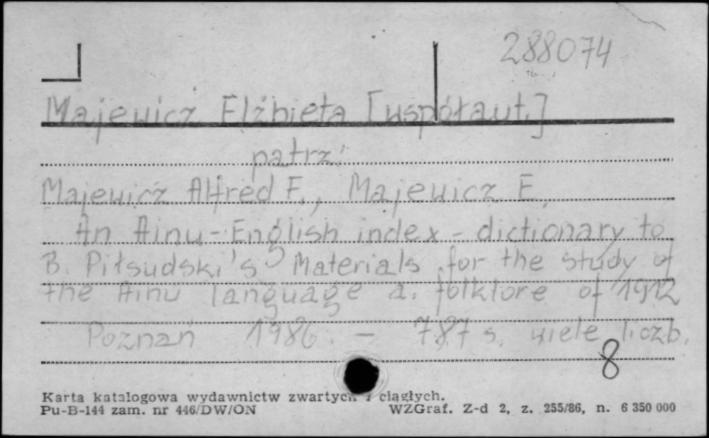 288074
Majewicz Elżbieta [współaut.]
patrz:
Majewicz Alfred F., Majewicz E.
An Ainu-English index-dictionary to
B. Piłsudski's Materials for the study of
the Ainu language a. folklore of 1912
Poznań 1986. - 787 s. wiele liczb.
8
Karta katalogowa wydawnictw zwartych i ciągłych.
Pu-B-144 zam. nr 446/DW/ON WZGraf. Z-d 2, z. 255/86, n. 6 350 000